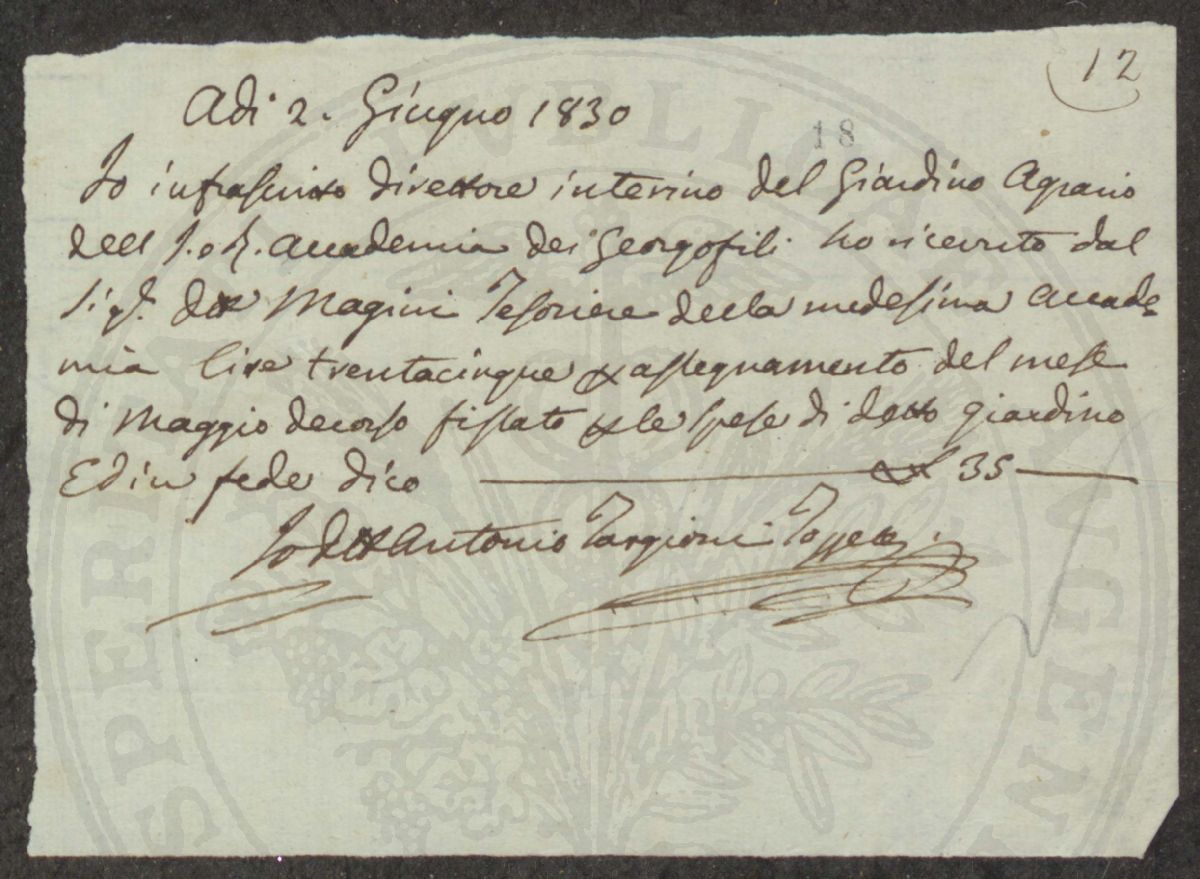 12
Adi 2. Giugno 1830
18
Io infrascritto direttore interino del Giardino Agrario
dell I. e R. Accademia dei Georgofili ho ricevuto dal
Sigr. Dott Magini Tesoriere della medesima Accade=
mia lire trentacinque p assegnamento del mese
di Maggio decorso fissato p le spese di detto giardino
Ed in fede dico £ 35
Io Dott Antonio Targioni Tozzetti
PUBLICAE
PROSPERITATI
AUGEN